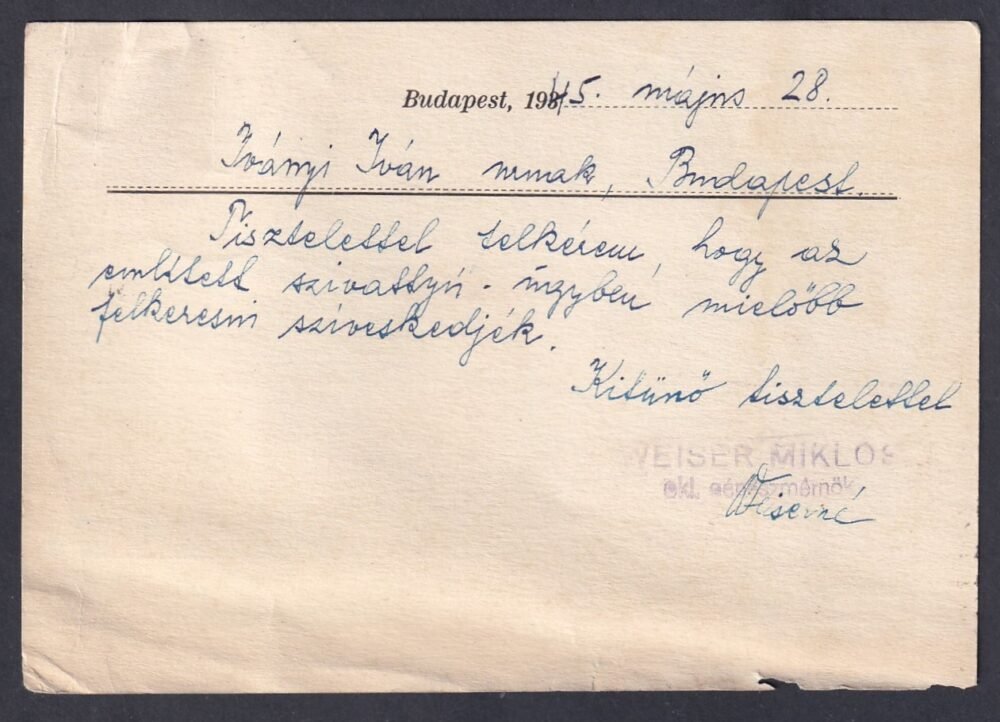 Budapest, 1945. május 28.
Iványi Iván urnak, Budapest.
Tisztelettel felkérem, hogy az
említett szivattyú-ügyben mielőbb
felkeresni sziveskedjék.
Kitünő tisztelettel
WEISER MIKLÓS
okl. gépészmérnök
Weiserné